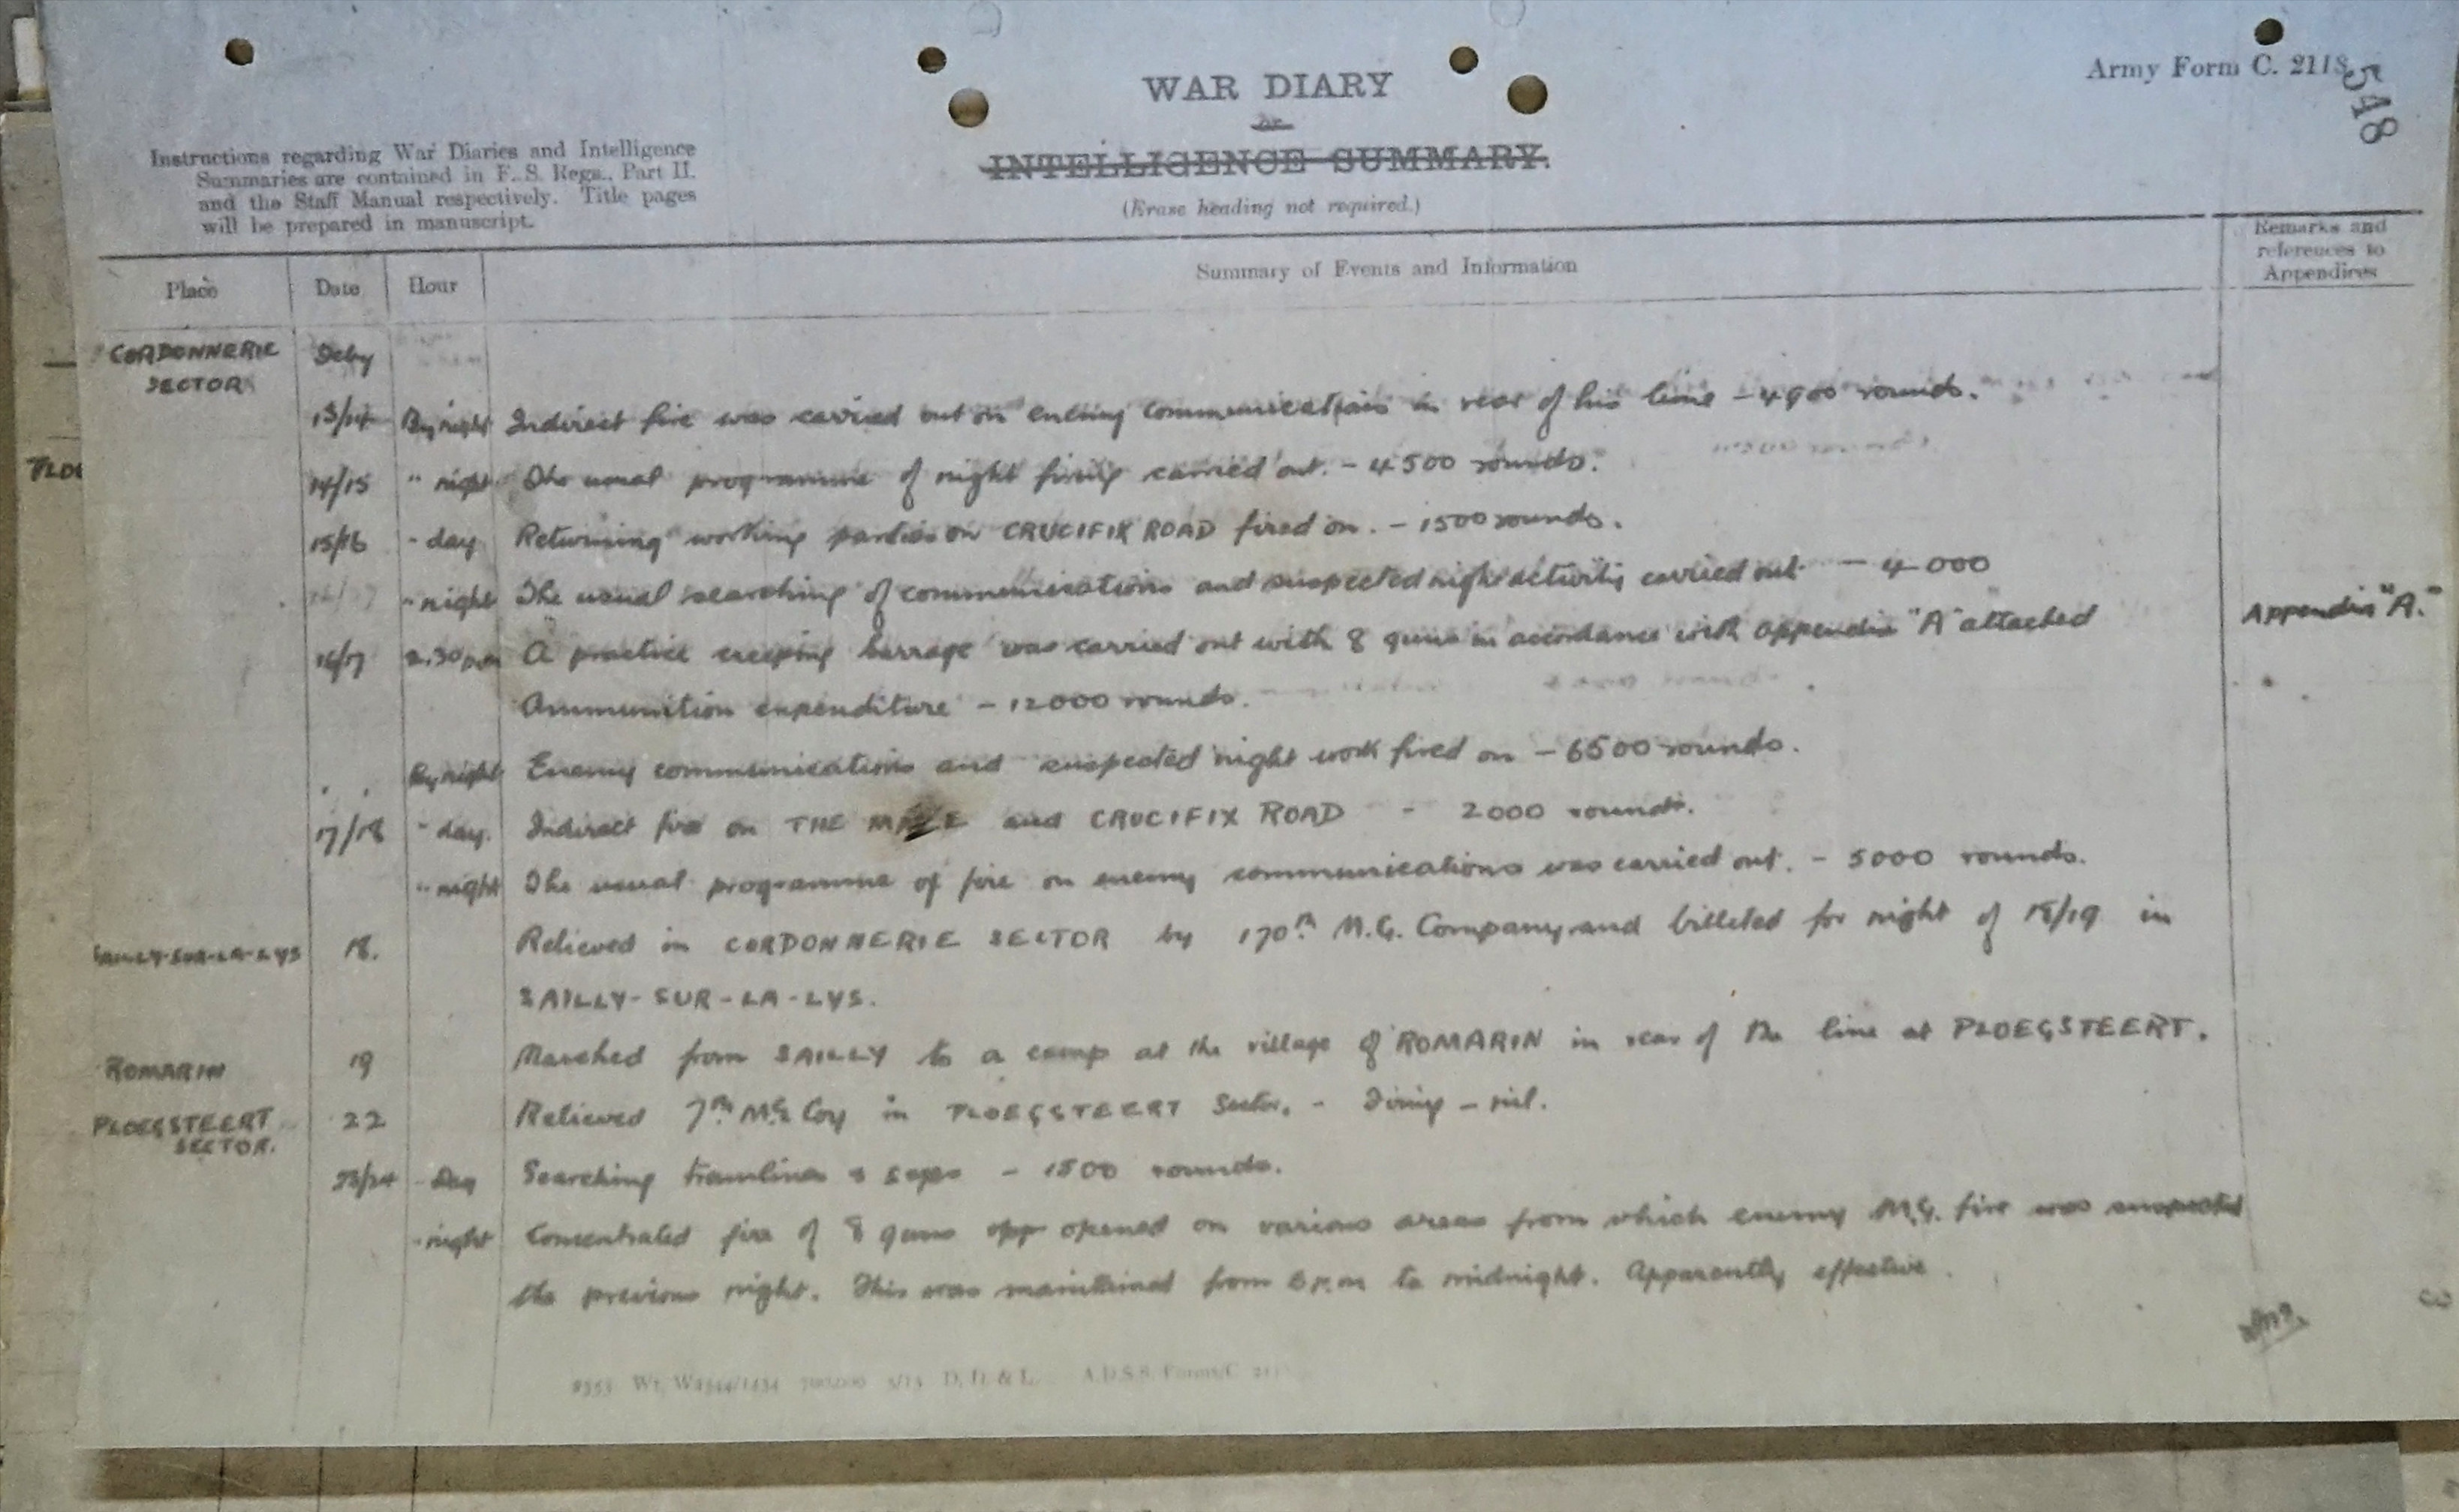 Army Form C. 2118
548
WAR DIARY
or
INTELLIGENCE SUMMARY.
(Erase heading not required.)
Instructions regarding War Diaries and Intelligence
Summaries are contained in F. S. Regs., Part II.
and the Staff Manual respectively. Title pages
will be prepared in manuscript.
Place Date Hour Summary of Events and Information Remarks and
references to
Appendices
CORDONNERIE
SECTOR
13/14 By night Indirect fire was carried out on enemy communications in rear of his line - 4900 rounds.
14/15 " night The usual programme of night firing carried out. - 4500 rounds.
15/16 - day Returning working parties on CRUCIFIX ROAD fired on. - 1500 rounds.
- night The usual searching of communications and suspected night activity carried out - 4000
16/17 2.30 pm A practice creeping barrage was carried out with 8 guns in accordance with appendix "A" attached Appendix "A."
Ammunition expenditure - 12000 rounds.
" " By night Enemy communications and suspected night work fired on - 6500 rounds.
17/18 " day. Indirect fire on THE MAZE and CRUCIFIX ROAD - 2000 rounds.
" night The usual programme of fire on enemy communications was carried out. - 5000 rounds.
SAILLY-SUR-LA-LYS 18. Relieved in CORDONNERIE SECTOR by 170th M.G. Company and billeted for night of 18/19 in
SAILLY-SUR-LA-LYS.
ROMARIN 19 Marched from SAILLY to a camp at the village of ROMARIN in rear of the line at PLOEGSTEERT.
PLOEGSTEERT
SECTOR. 22 Relieved 7th M.G. Coy in PLOEGSTEERT Sector. - Firing - nil.
23/24 - Day Searching tramlines & saps - 1500 rounds.
- night Concentrated fire of 8 guns opp opened on various areas from which enemy M.G. fire was suspected
the previous night. This was maintained from 6 p.m to midnight. Apparently effective.
D. D. & L. A.D.S.S. Forms/C.